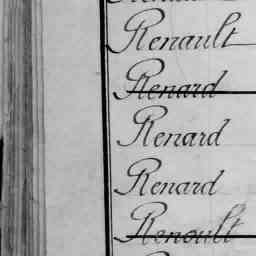 Renault
Renard
Renard
Renard
Renoult